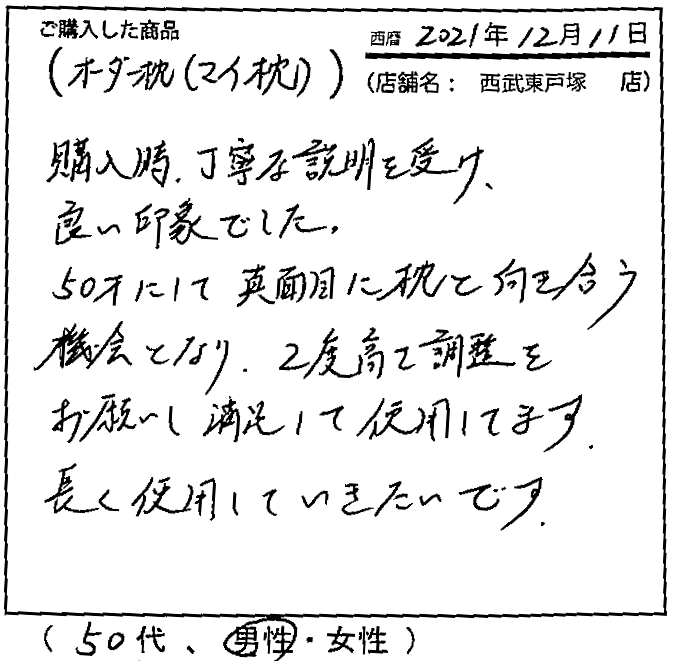 ご購入した商品
西暦 2021年12月11日
(オーダー枕(マイ枕))
(店舗名: 西武東戸塚 店)
購入時、丁寧な説明を受け、
良い印象でした。
50才にして真面目に枕と向き合う
機会となり、2度高さ調整を
お願いし満足して使用してます。
長く使用していきたいです。
(50代、男性・女性)